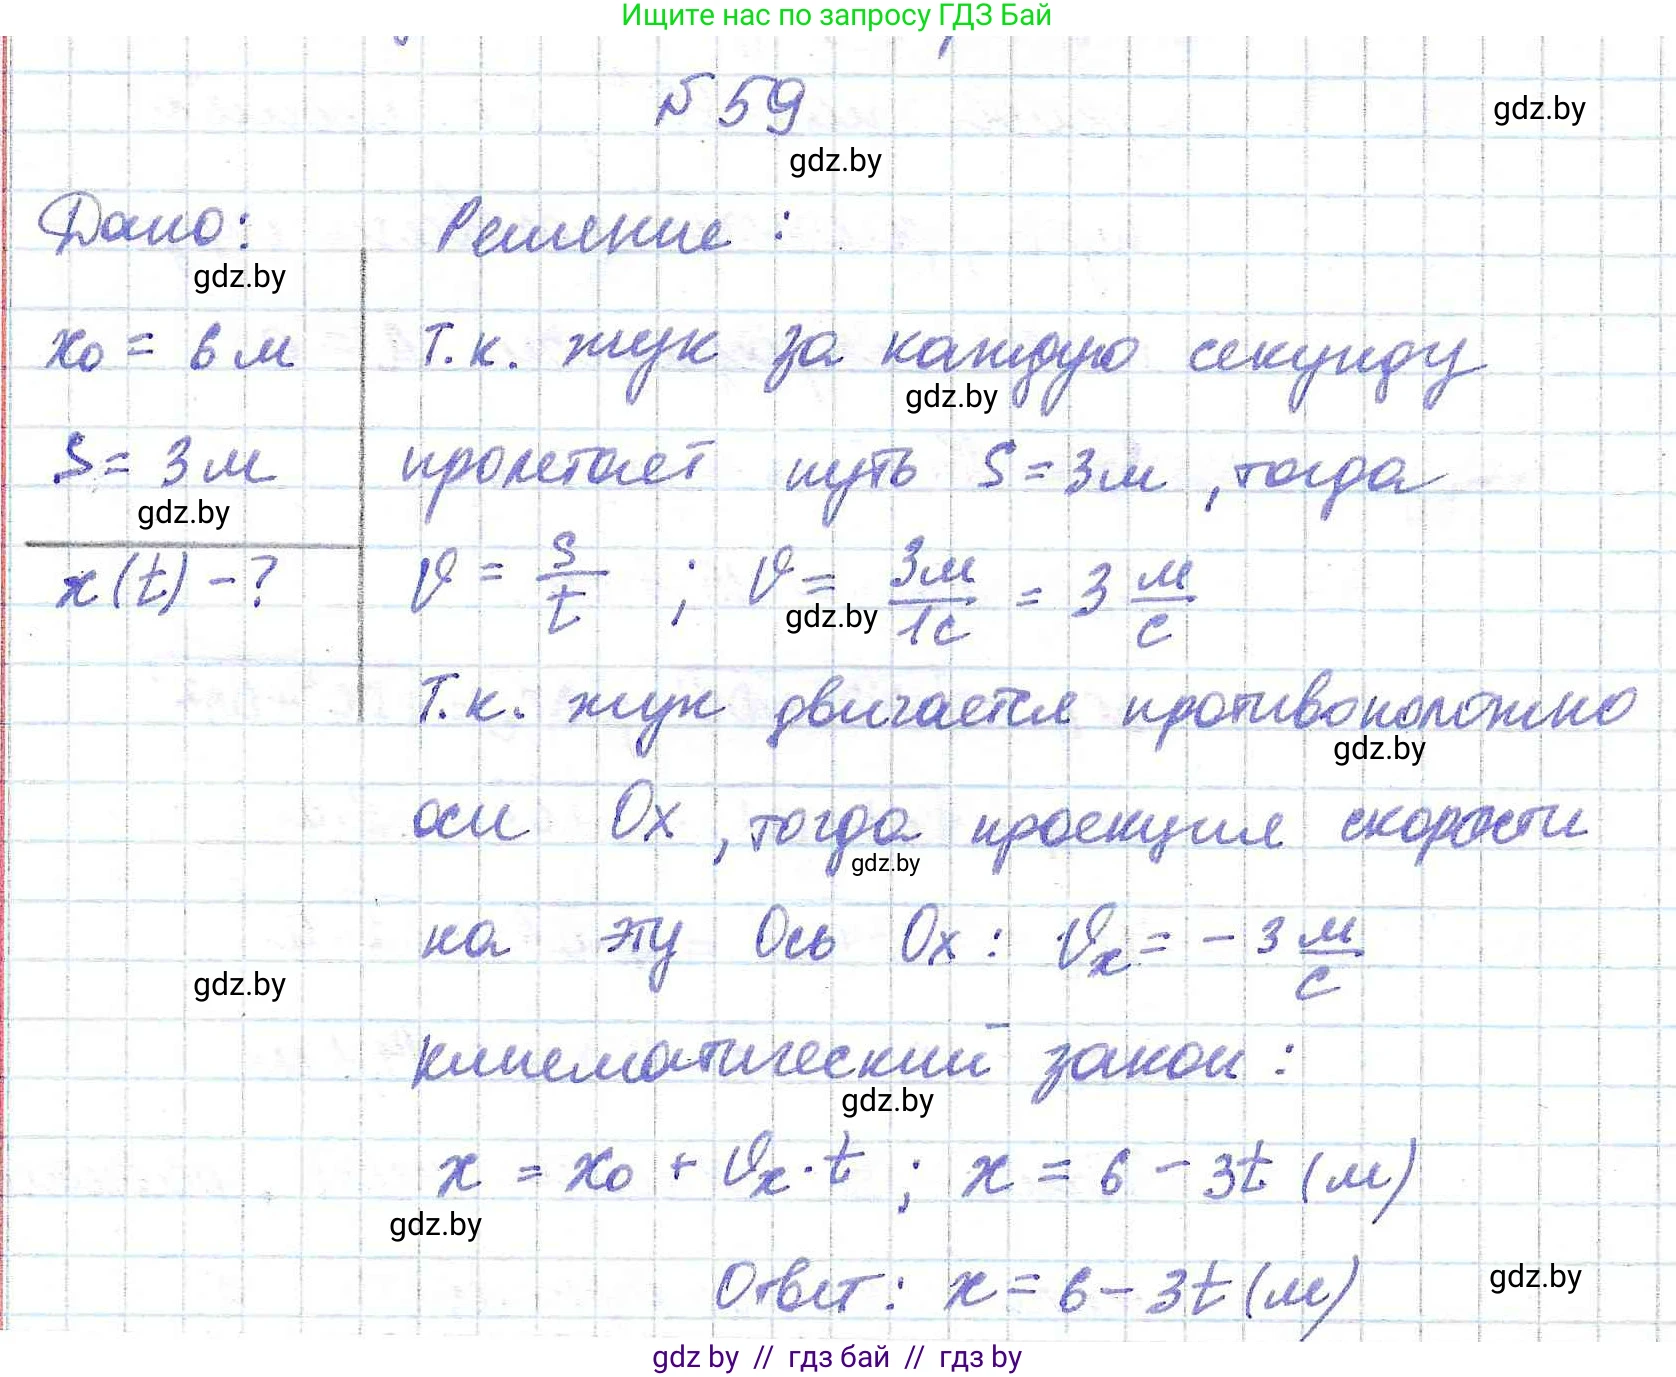 Ищите нас по запросу ГДЗ Бай
№ 59
gdz.by
gdz.by
Дано:
Решение:
gdz.by
x₀ = 6 м
Т.к. жук за каждую секунду
gdz.by
S = 3 м
пролетает путь S = 3 м, тогда
gdz.by
x(t) - ?
υ = s/t ; υ = 3м/1с = 3 м/с
gdz.by
Т.к. жук двигается противоположно
gdz.by
оси Ox, тогда проекция скорости
gdz.by
на эту Ось Ox: υₓ = - 3 м/с
gdz.by
кинематический закон:
gdz.by
x = x₀ + υₓ · t ; x = 6 - 3t (м)
gdz.by
Ответ: x = 6 - 3t (м)
gdz.by
gdz by // гдз бай // гдз by